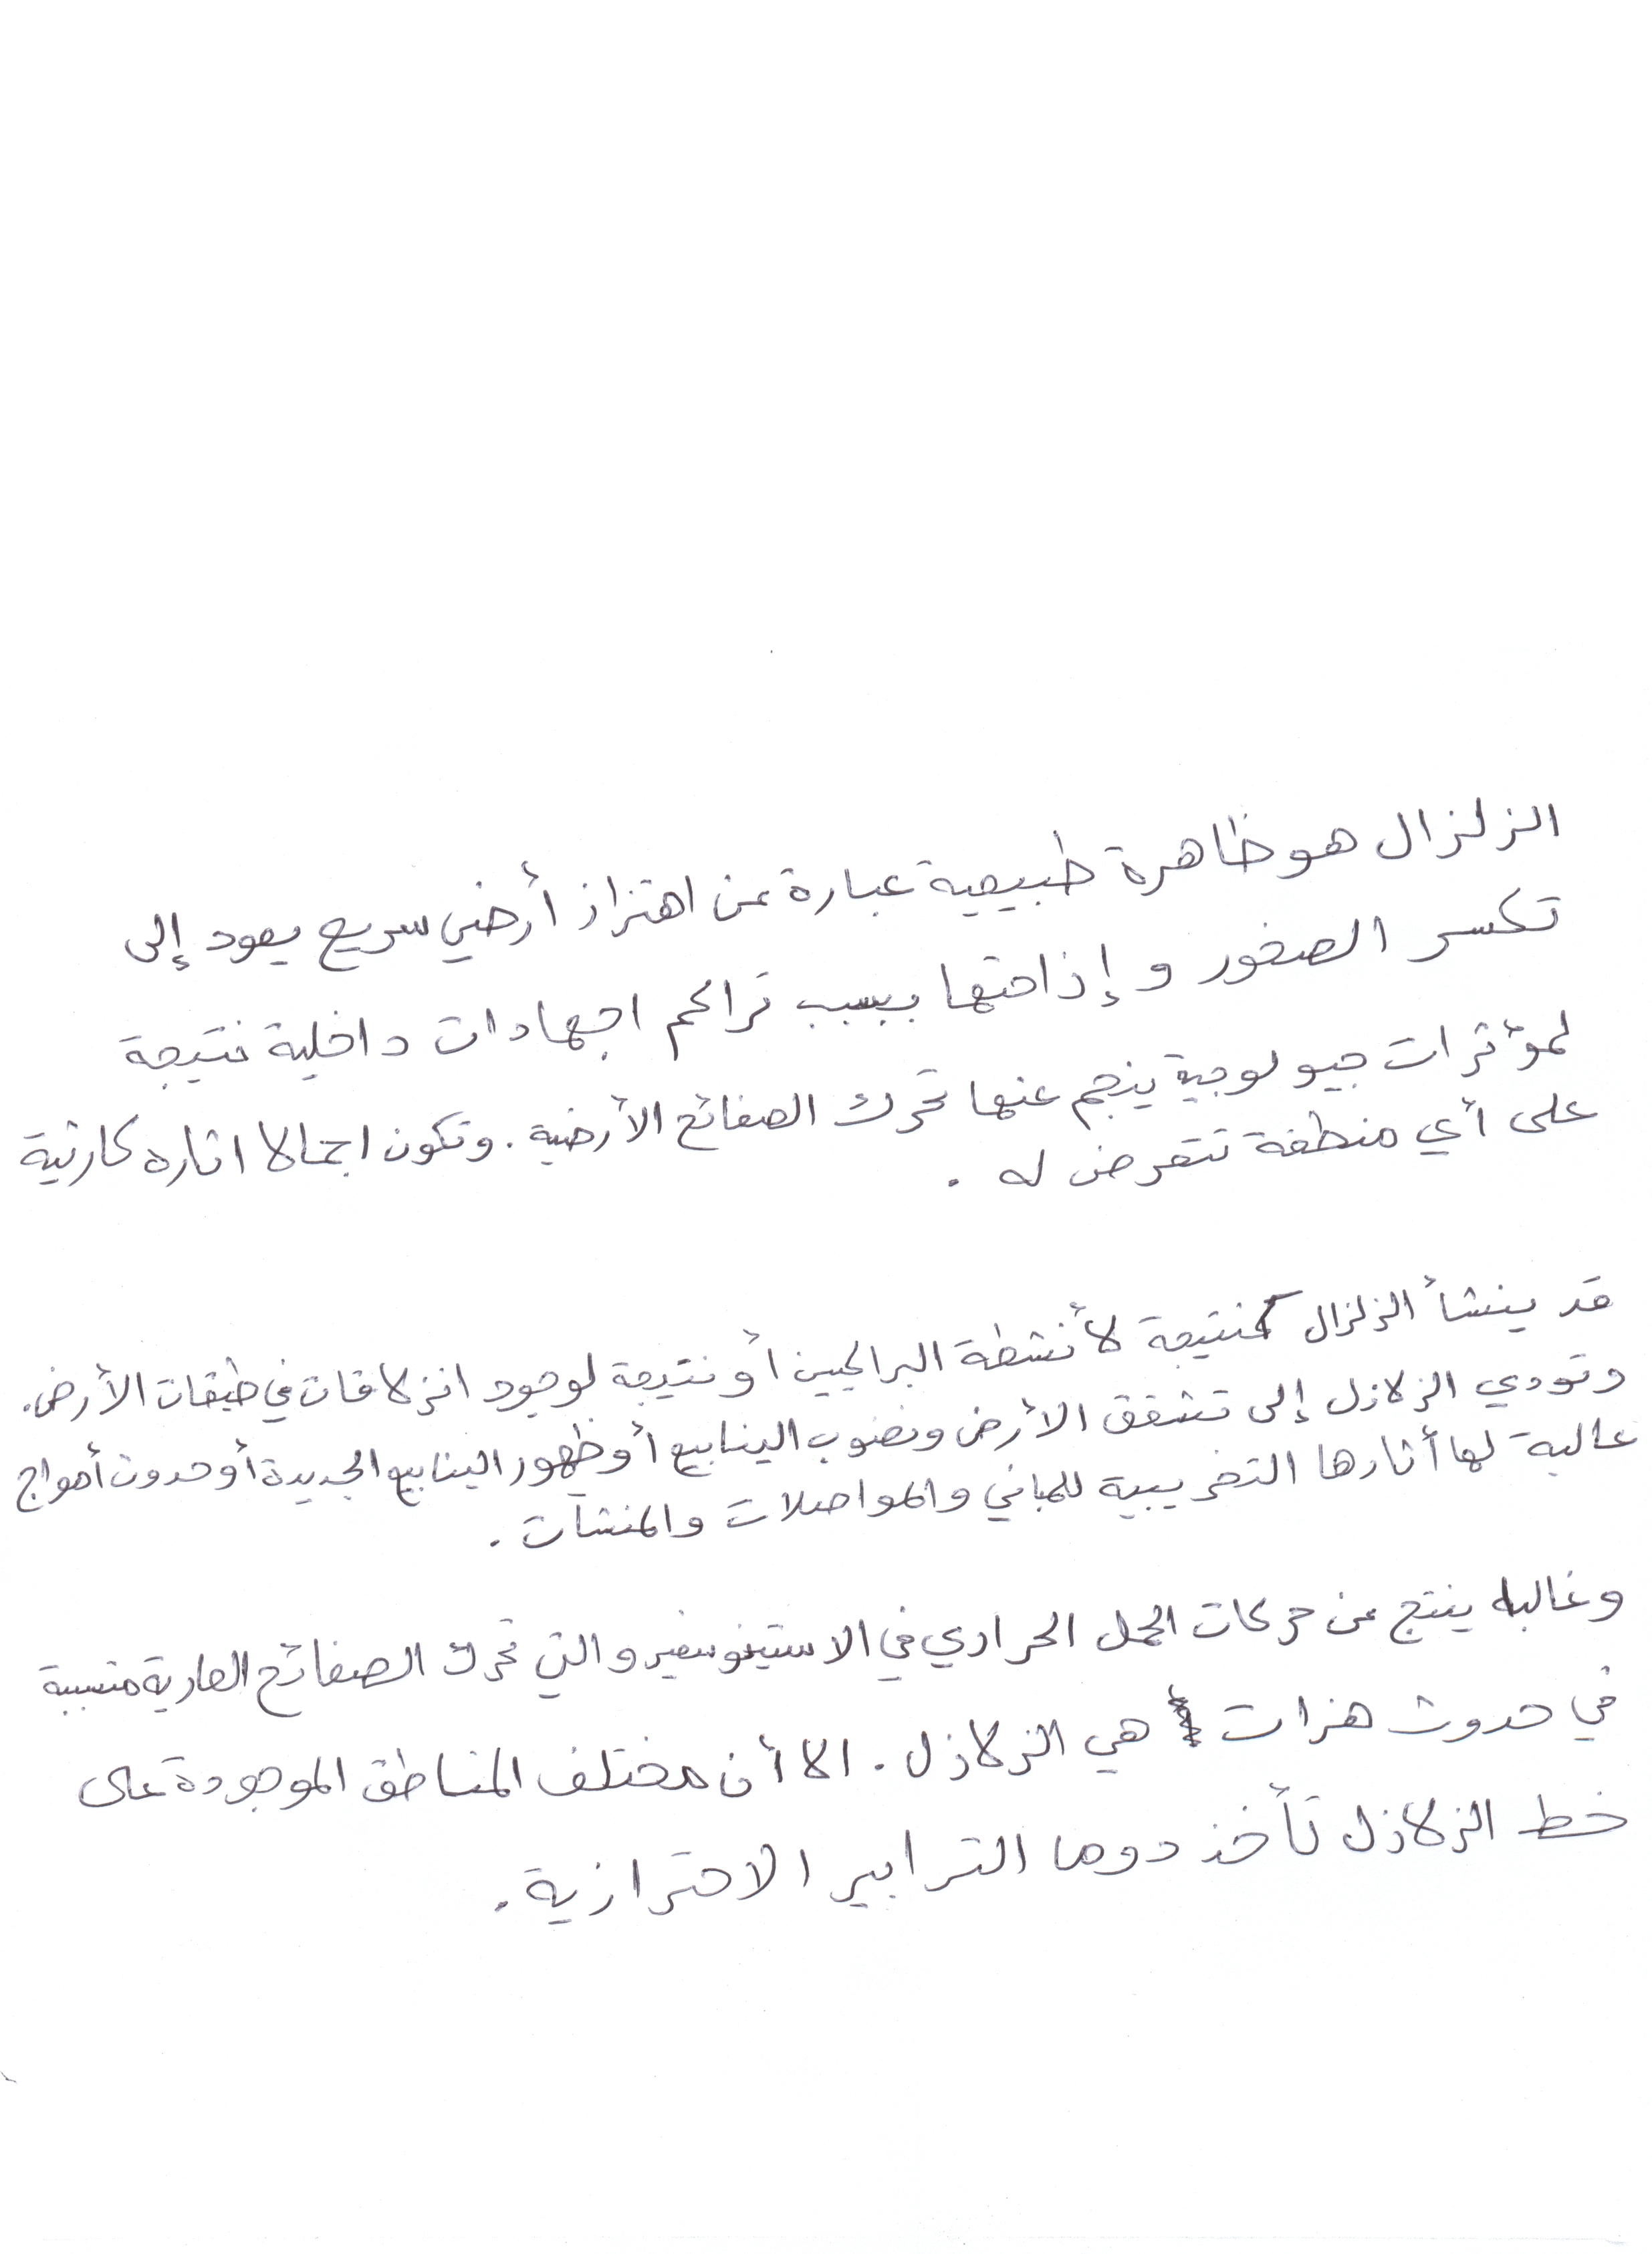 الزلزال هو ظاهرة طبيعية عبارة عن اهتزاز أرضي سريع يعود إلى
تكسر الصخور وإذاحتها بسبب تراكم اجهادات داخلية نتيجة
لمؤثرات جيولوجية ينجم عنها تحرك الصفائح الأرضية. وتكون اجمالا اثاره كارثية
على أي منطقة تتعرض له.
قد ينشأ الزلزال كنتيجة لأنشطة البراكين أو نتيجة لوجود انزلاقات في طبقات الأرض.
وتودي الزلازل إلى تشقق الأرض ونضوب الينابيع أو ظهور الينابيع الجديدة أو حدوث أمواج
عالية لها أثارها التخريبية للمباني والمواصلات والمنشآت.
وغالبا ينتج عن حركات الحمل الحراري في الاستينوسفير والتي تحرك الصفائح القارية متسببة
في حدوث هزات هي الزلازل. الا أن مختلف المناطق الموجودة على
خط الزلازل تأخذ دوما التدابير الاحترازية.